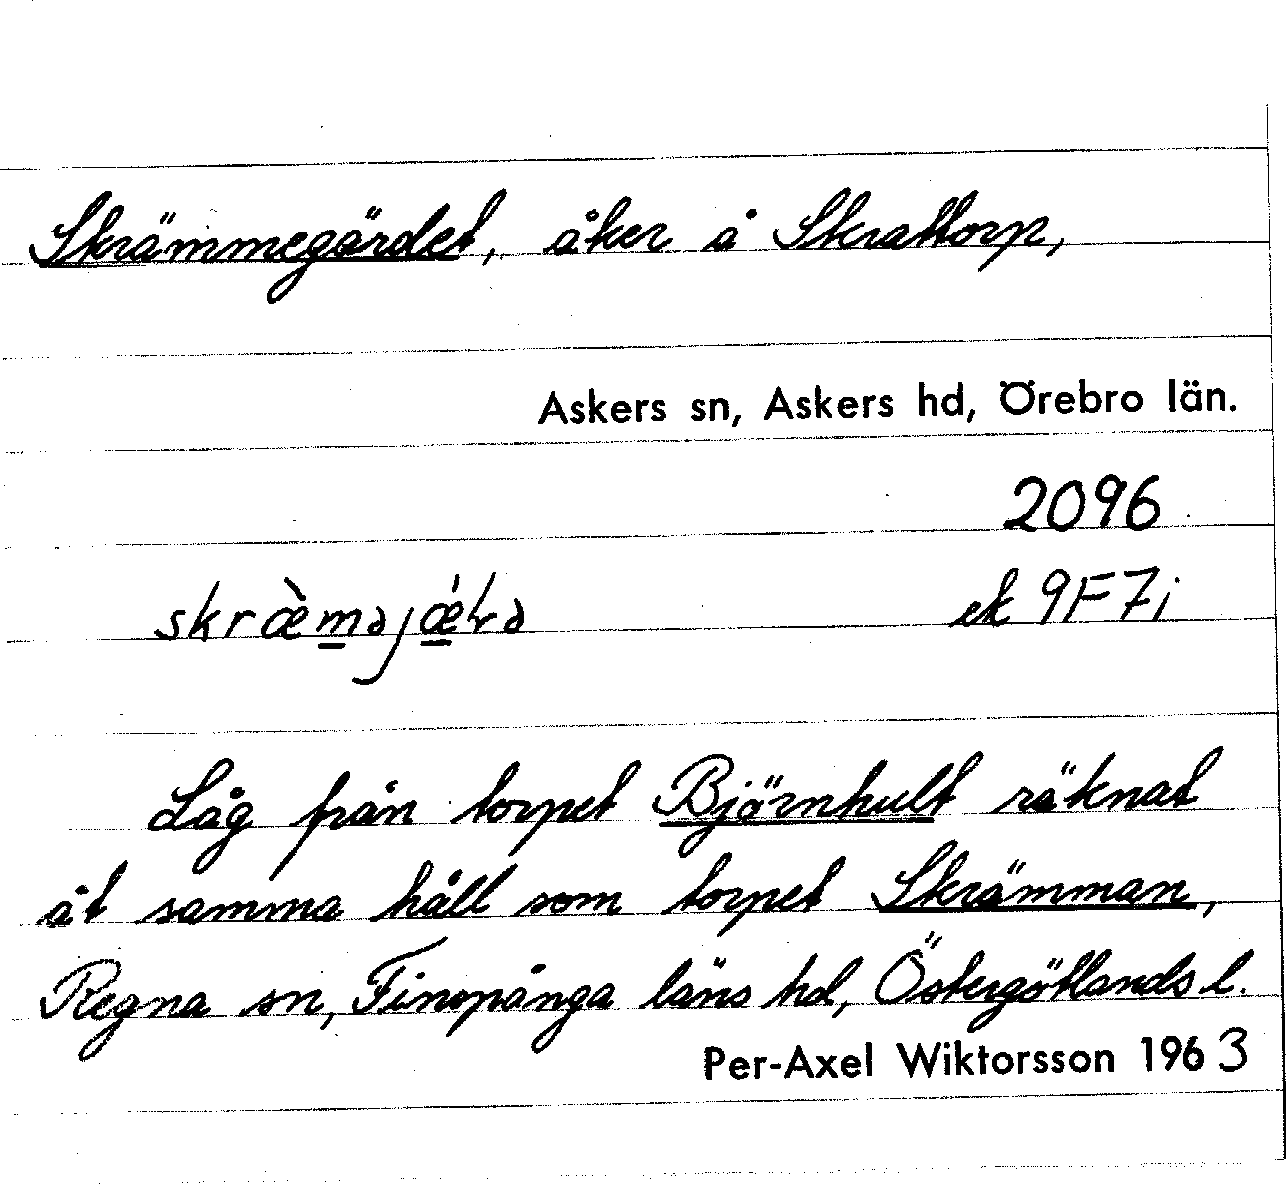 Skrämmegärdet, åker å Skrattorp,
Askers sn, Askers hd, Örebro län.
2096
ek 9F7i
Låg från torpet Björnhult räknat
åt samma håll som torpet Skrämman,
Regna sn, Finspånga läns hd, Östergötlands l.
Per-Axel Wiktorsson 1963